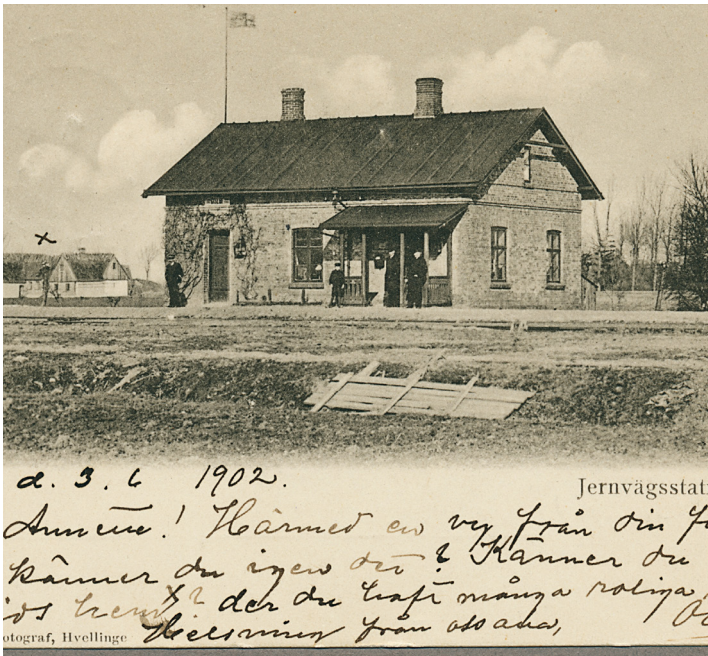 d. 3. 6 1902.
Jernvägsstati
! Härmed en vy från din f
känner du igen det? Känner du
ds hem x? der du haft många roliga,
otograf, Hvellinge
Helsning från oss alla,